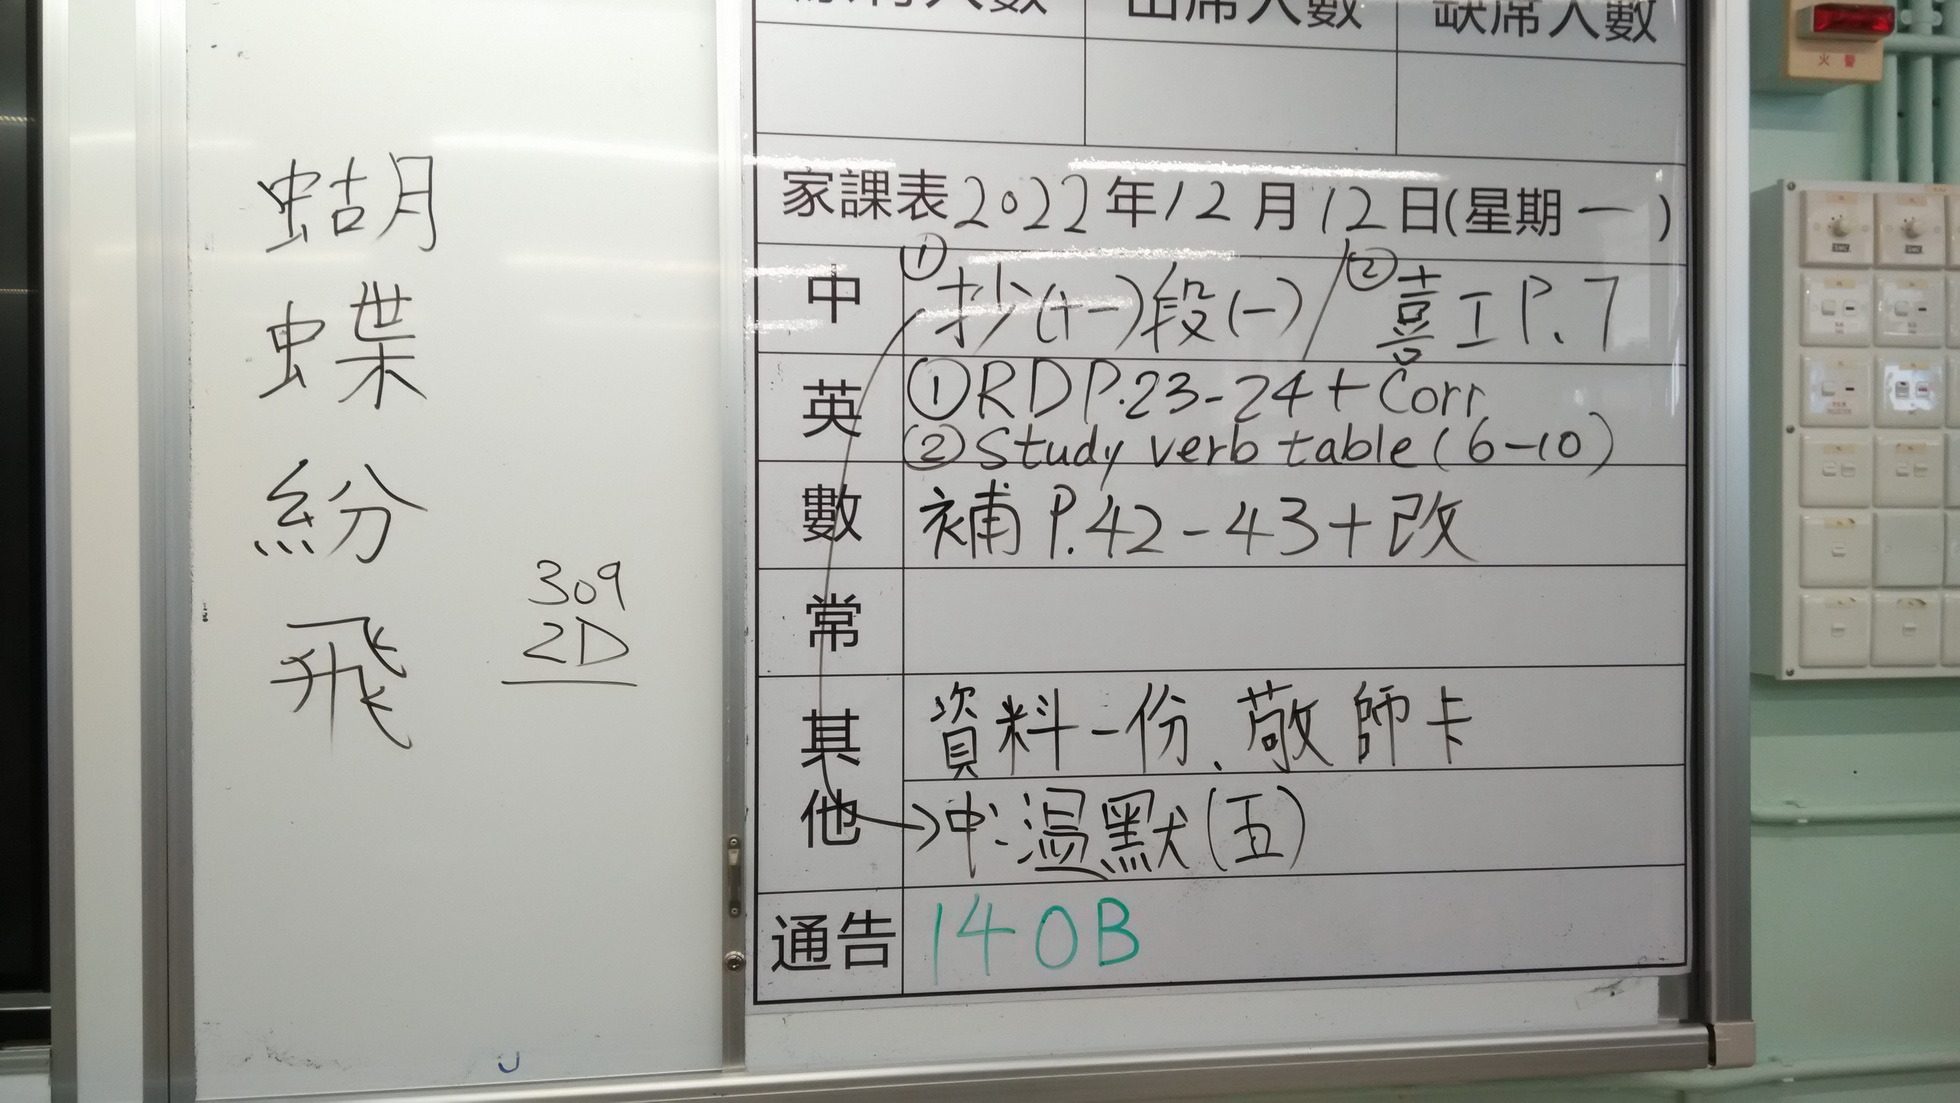 蝴
蝶
紛
飛
309
2D
出席人數
缺席人數
家課表2022年12月12日(星期一)
中 ①抄(十一)段(一) / ②喜工P.7
英 ①RD P.23-24+Corr
②Study verb table(6-10)
數 補P.42-43+改
常
其他 資料一份、敬師卡
→中:温默(五)
通告 140B
火警